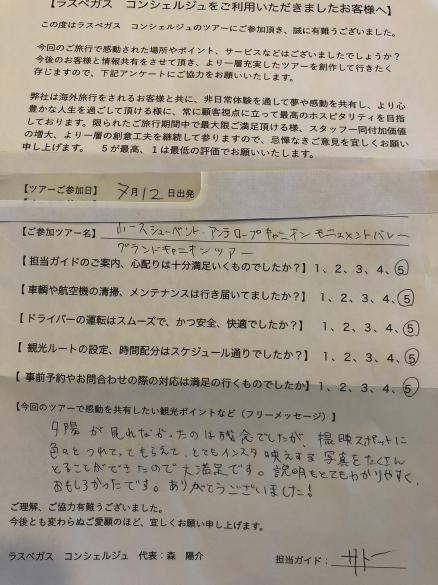 【ラスベガス コンシェルジュをご利用いただきましたお客様へ】
この度はラスベガス コンシェルジュのツアーにご参加頂き、誠に有難うございました。
今回のご旅行で感動された場所やポイント、サービスなどはございましたでしょうか?
今後のお客様と情報共有をさせて頂き、より一層充実したツアーを創作して行きたく
存じますので、下記アンケートにご協力をお願いいたします。
弊社は海外旅行をされるお客様と共に、非日常体験を通して夢や感動を共有し、より心
豊かな人生を過ごして頂ける様に、常に顧客視点に立って最高のホスピタリティを目指
しております。限られたご旅行期間中で最大限ご満足頂ける様、スタッフ一同付加価値
の増大、より一層の創意工夫を継続して参りますので、忌憚なきご意見を宜しくお願い
申し上げます。 5が最高、1は最低の評価でお願いいたします。
【ツアーご参加日】 7月12日出発
【ご参加ツアー名】 ホースシューベント・アンテロープキャニオン モニュメントバレー
グランドキャニオンツアー
【担当ガイドのご案内、心配りは十分満足いくものでしたか?】1、2、3、4、5
【車輌や航空機の清掃、メンテナンスは行き届いてましたか?】1、2、3、4、5
【ドライバーの運転はスムーズで、かつ安全、快適でしたか?】1、2、3、4、5
【観光ルートの設定、時間配分はスケジュール通りでしたか?】1、2、3、4、5
【事前予約やお問合わせの際の対応は満足の行くものでしたか】1、2、3、4、5
【今回のツアーで感動を共有したい観光ポイントなど(フリーメッセージ)】
夕陽が見れなかったのは残念でしたが、撮映スポットに
色々とつれてってもらえて、とてもインスタ映えする写真をたくさん
とることができたので大満足です。説明もとてもわかりやすく、
おもしろかったです。ありがとうございました!
ご理解、ご協力有難うございました。
今後とも変わらぬご愛顧のほど、宜しくお願い申し上げます。
ラスベガス コンシェルジュ 代表:森 陽介 担当ガイド:サトー